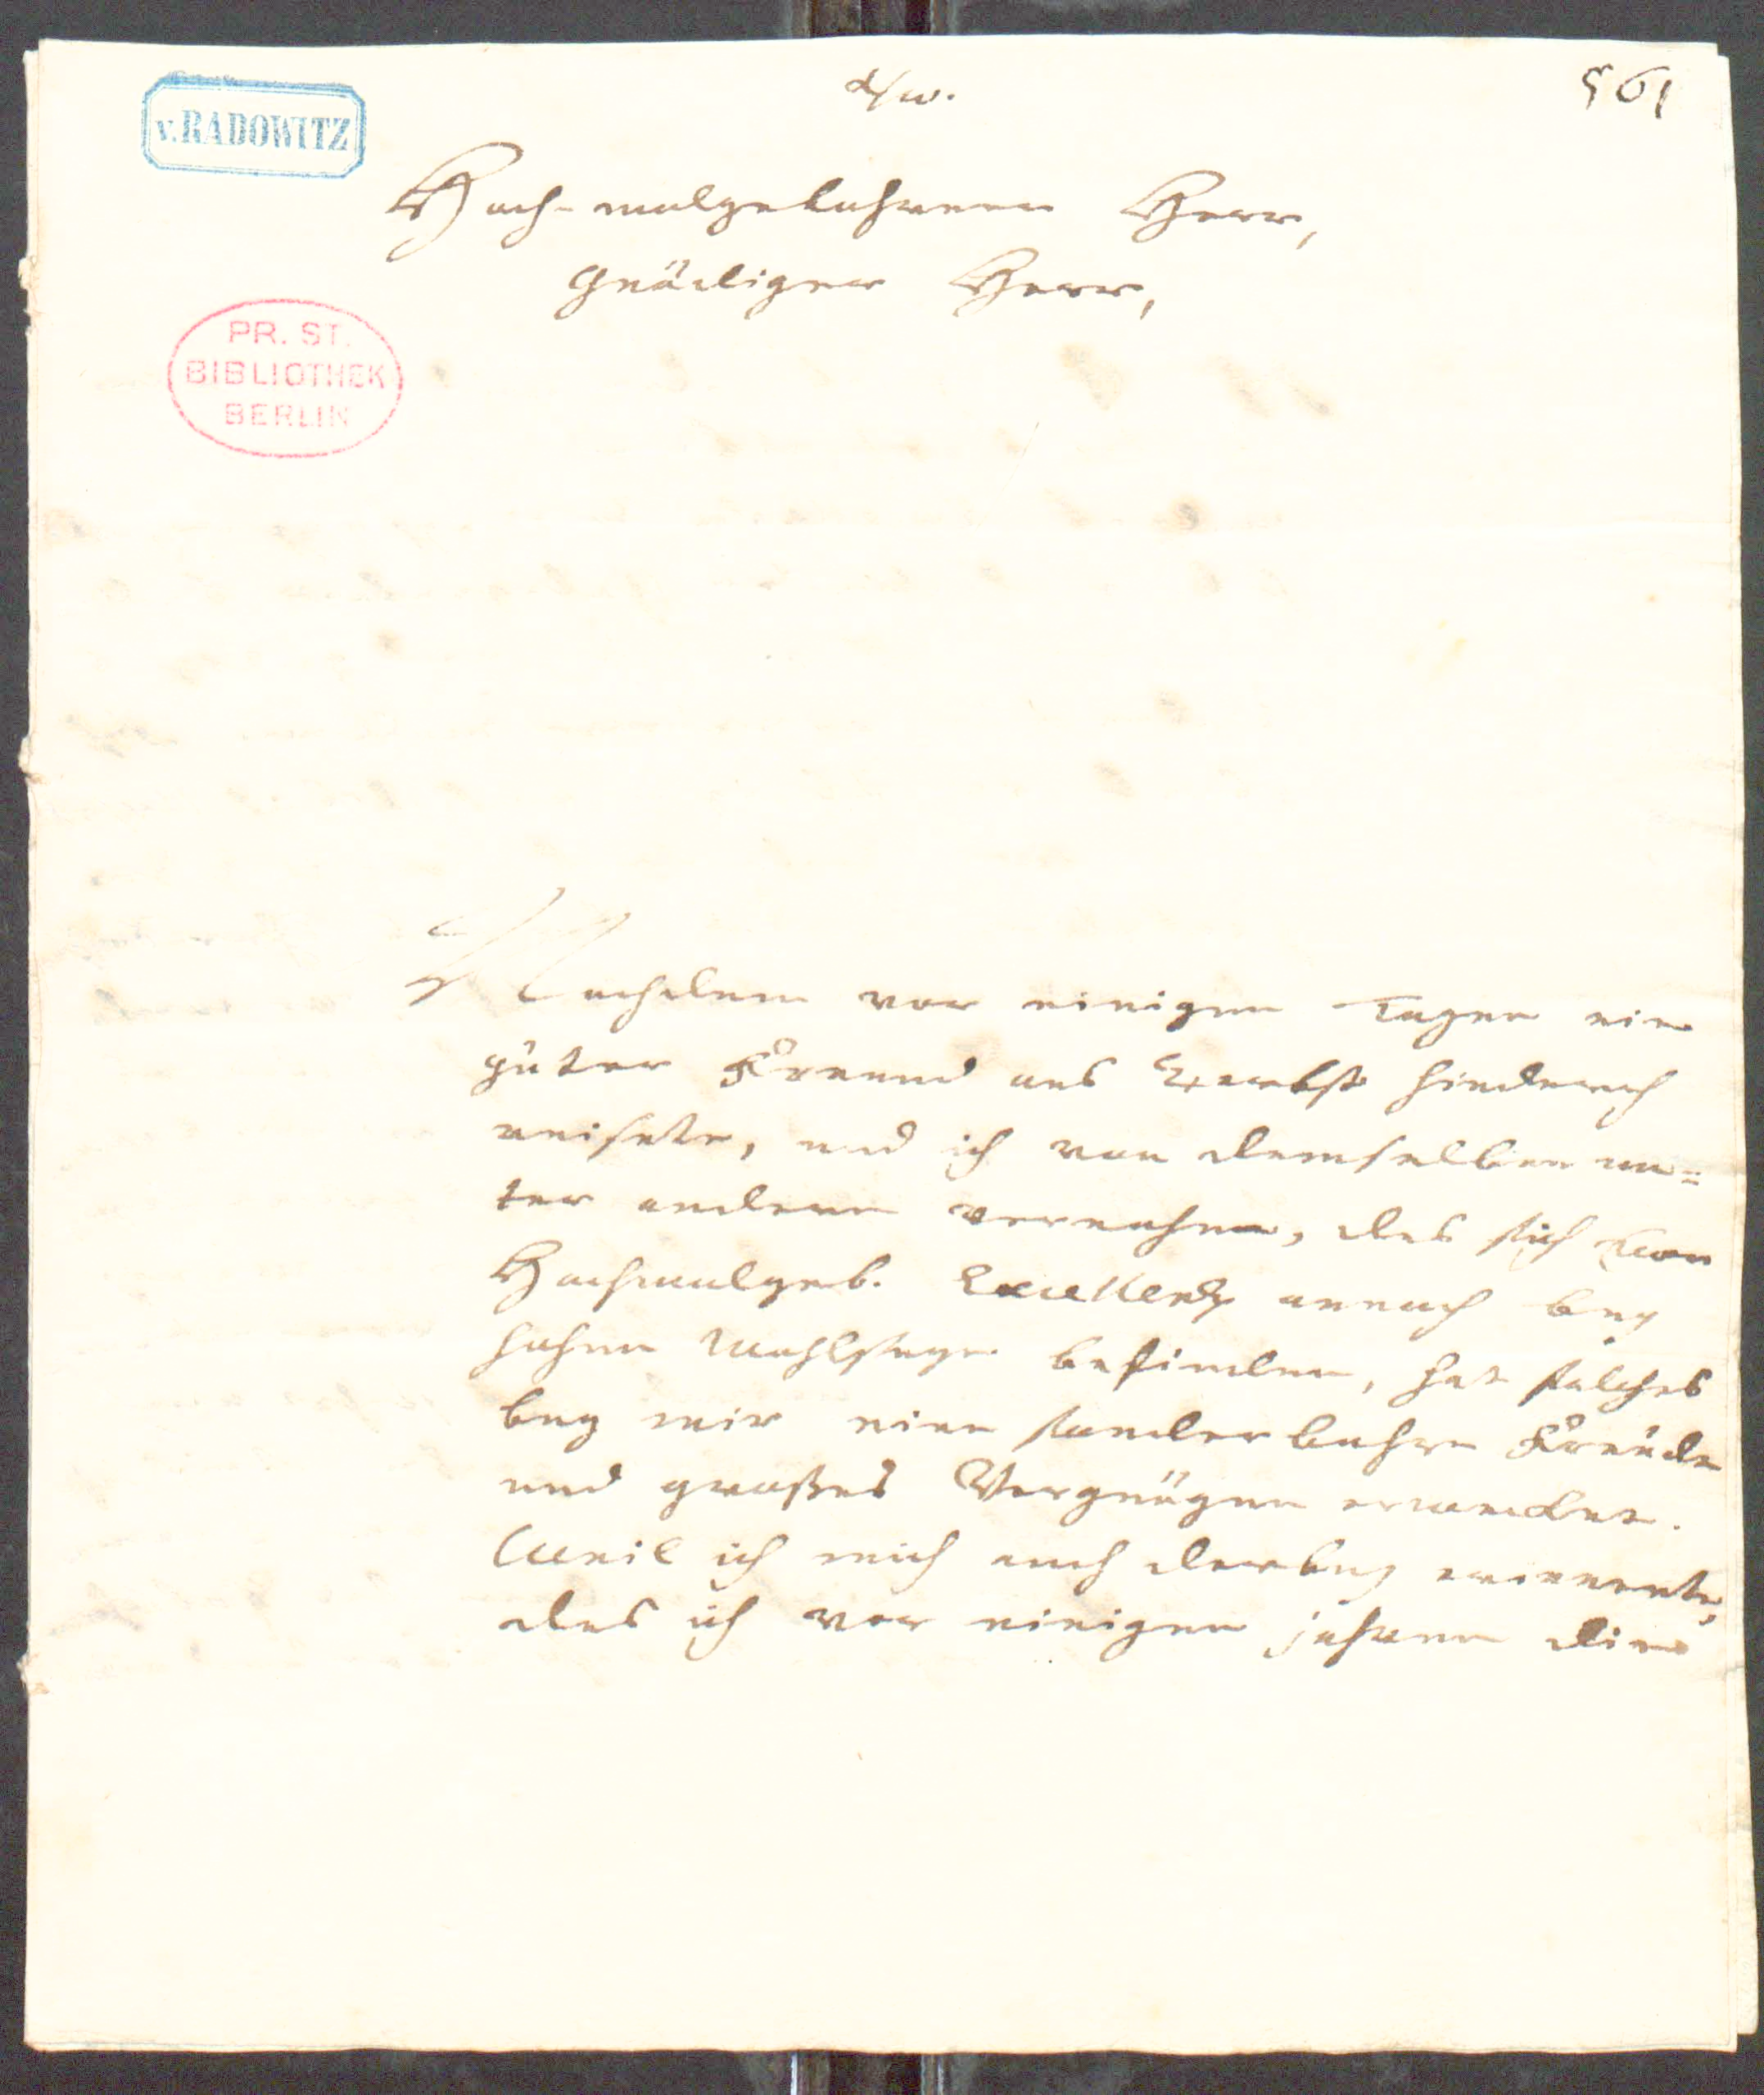 v. RADOWITZ
561
Hoch-wolgebohrner Herr,
Gnädiger Herr,
PR. ST.
BIBLIOTHEK
BERLIN
Nachdem vor einigen Tagen ein
guter Freund aus Zerbst hindurch
reisete, und ich von demselben un=
ter andern vernahm, das sich Ew.
Hochwolgeb. Excellentz annoch bey
hohem Wohlseyn befinden, hat solches
bey mir eine sonderbahre Freüde
und großes Vergnügen erwecket.
Weil ich mich auch darbey erinnerte,
das ich vor einigen jahren die